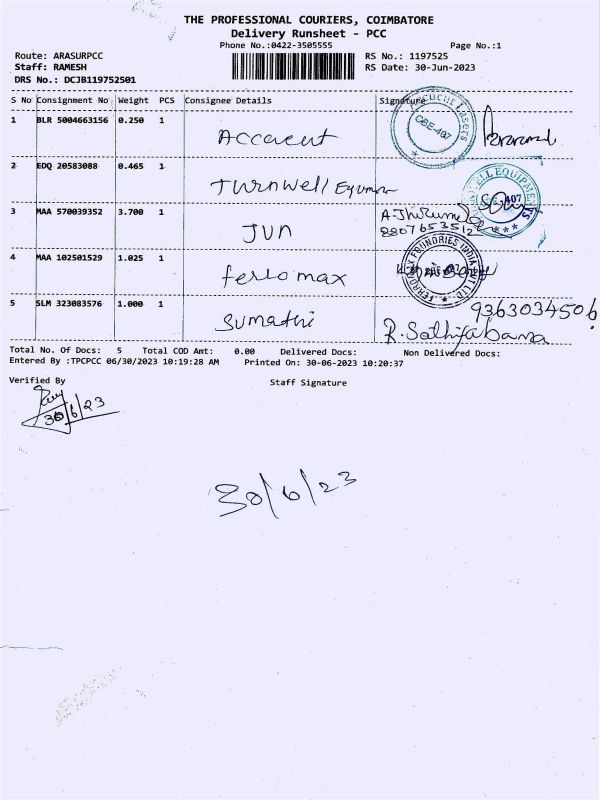 THE PROFESSIONAL COURIERS, COIMBATORE
Delivery Runsheet - PCC
Phone No.:0422-3505555 Page No.:1
Route: ARASURPCC RS No.: 1197525
Staff: RAMESH RS Date: 30-Jun-2023
DRS No.: DCJB119752501
S No Consignment No Weight PCS Consignee Details Signature
1 BLR 5004663156 0.250 1
CBE-407
2 EDQ 20583088 0.465 1
Turnwell
WELL EQUIPMENTS
407
3 MAA 570039352 3.700 1 JUN
8807653512
4 MAA 102501529 1.025 1 ferromax
FOUNDRIES INDIA PVT LTD
5 SLM 323083576 1.000 1 Sumathi
9363034506
R. Sathiyabama
Total No. Of Docs: 5 Total COD Amt: 0.00 Delivered Docs: Non Delivered Docs:
Entered By :TPCPCC 06/30/2023 10:19:28 AM Printed On: 30-06-2023 10:20:37
Verified By Staff Signature
30/6/23
30/6/23